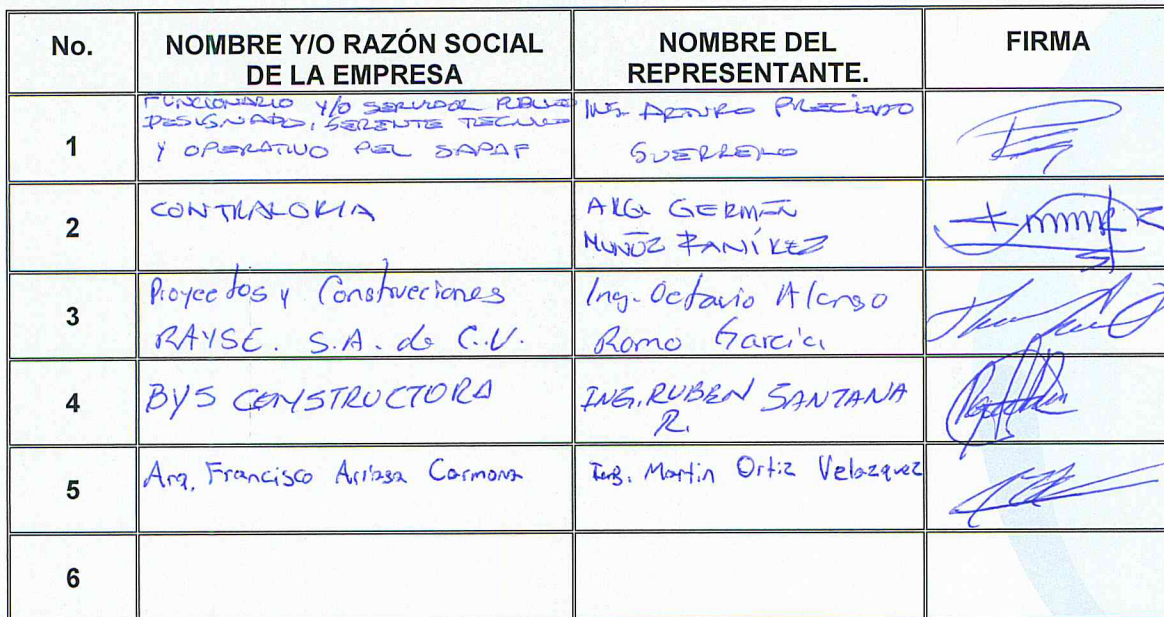 No.
NOMBRE Y/O RAZÓN SOCIAL
DE LA EMPRESA
NOMBRE DEL
REPRESENTANTE.
FIRMA
1
FUNCIONARIO Y/O SERVIDOR PUBLICO
DESIGNADO, GERENTE TECNICO
Y OPERATIVO DEL SAPAF
ING. ARTURO PRECIADO
GUERRERO
2
CONTRALORIA
ARQ. GERMÁN
MUÑOZ RAMÍREZ
3
Proyectos y Construcciones
RAYSE. S.A. de C.V.
Ing. Octavio Alonso
Romo García
4
BYS CONSTRUCTORA
ING. RUBEN SANTANA
R.
5
Arq. Francisco Arriaga Carmona
Ing. Martin Ortiz Velazquez
6